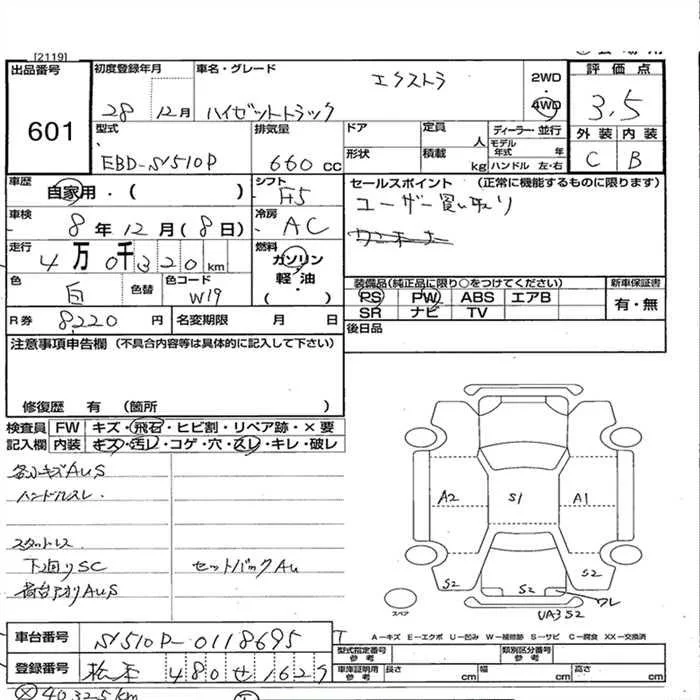 [2119]
出品番号
601
初度登録年月
28 12月
車名・グレード
エクストラ
ハイゼットトラック
2WD
4WD
評価点
3.5
外装 内装
C B
型式
EBD-S510P
排気量
660 cc
ドア
定員
人
ディーラー・並行
モデル年式 年
形状
積載
kg
ハンドル 左・右
車歴
自家用・( )
シフト
F5
セールスポイント (正常に機能するものに限ります)
ユーザー買い取り
車検
8年 12月(8日)
冷房
AC
走行
4万0千320km
燃料
ガソリン
軽油
( )
色
白
色替
色コード
W19
装備品(純正品に限り○をつけてください)
新車保証書
PS PW ABS エアB
SR ナビ TV
有・無
R券 8220円
名変期限 月 日
後日品
注意事項申告欄 (不具合内容等は具体的に記入して下さい)
修復歴 有 (箇所 )
検査員記入欄
FW キズ・飛石・ヒビ割・リペア跡・×要
内装 キズ・汚レ・コゲ・穴・スレ・キレ・破レ
各小キズAUS
ハンドルスレ.
スタットレス
下回りSC
セットバックAU
荷台アオリAUS
A2
S1
A1
S2
S2
S2
ワレ
UA3S2
スペア
A－キズ E－エクボ U－凹み W－補修跡 S－サビ C－腐食 XX－交換済
車台番号
S510P-0118695
登録番号
松本 480せ1629
型式指定番号
参考
類別区分番号
参考
車庫証明用
参考
長さ cm
幅 cm
高さ cm
40325km